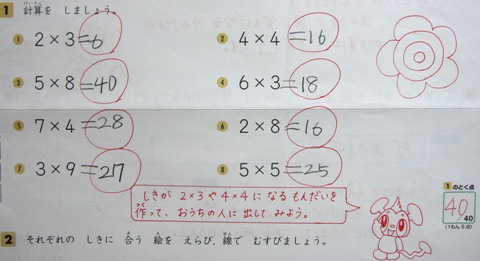 1 計算を しましょう。
けいさん
① 2×3=6 ② 4×4=16
③ 5×8=40 ④ 6×3=18
⑤ 7×4=28 ⑥ 2×8=16
⑦ 3×9=27 ⑧ 5×5=25
しきが 2×3や4×4に なる もんだいを
作って、おうちの人に 出して みよう。
1のとく点
40
40
(1もん5点)
2 それぞれの しきに 合う 絵を えらび、線で むすびましょう。